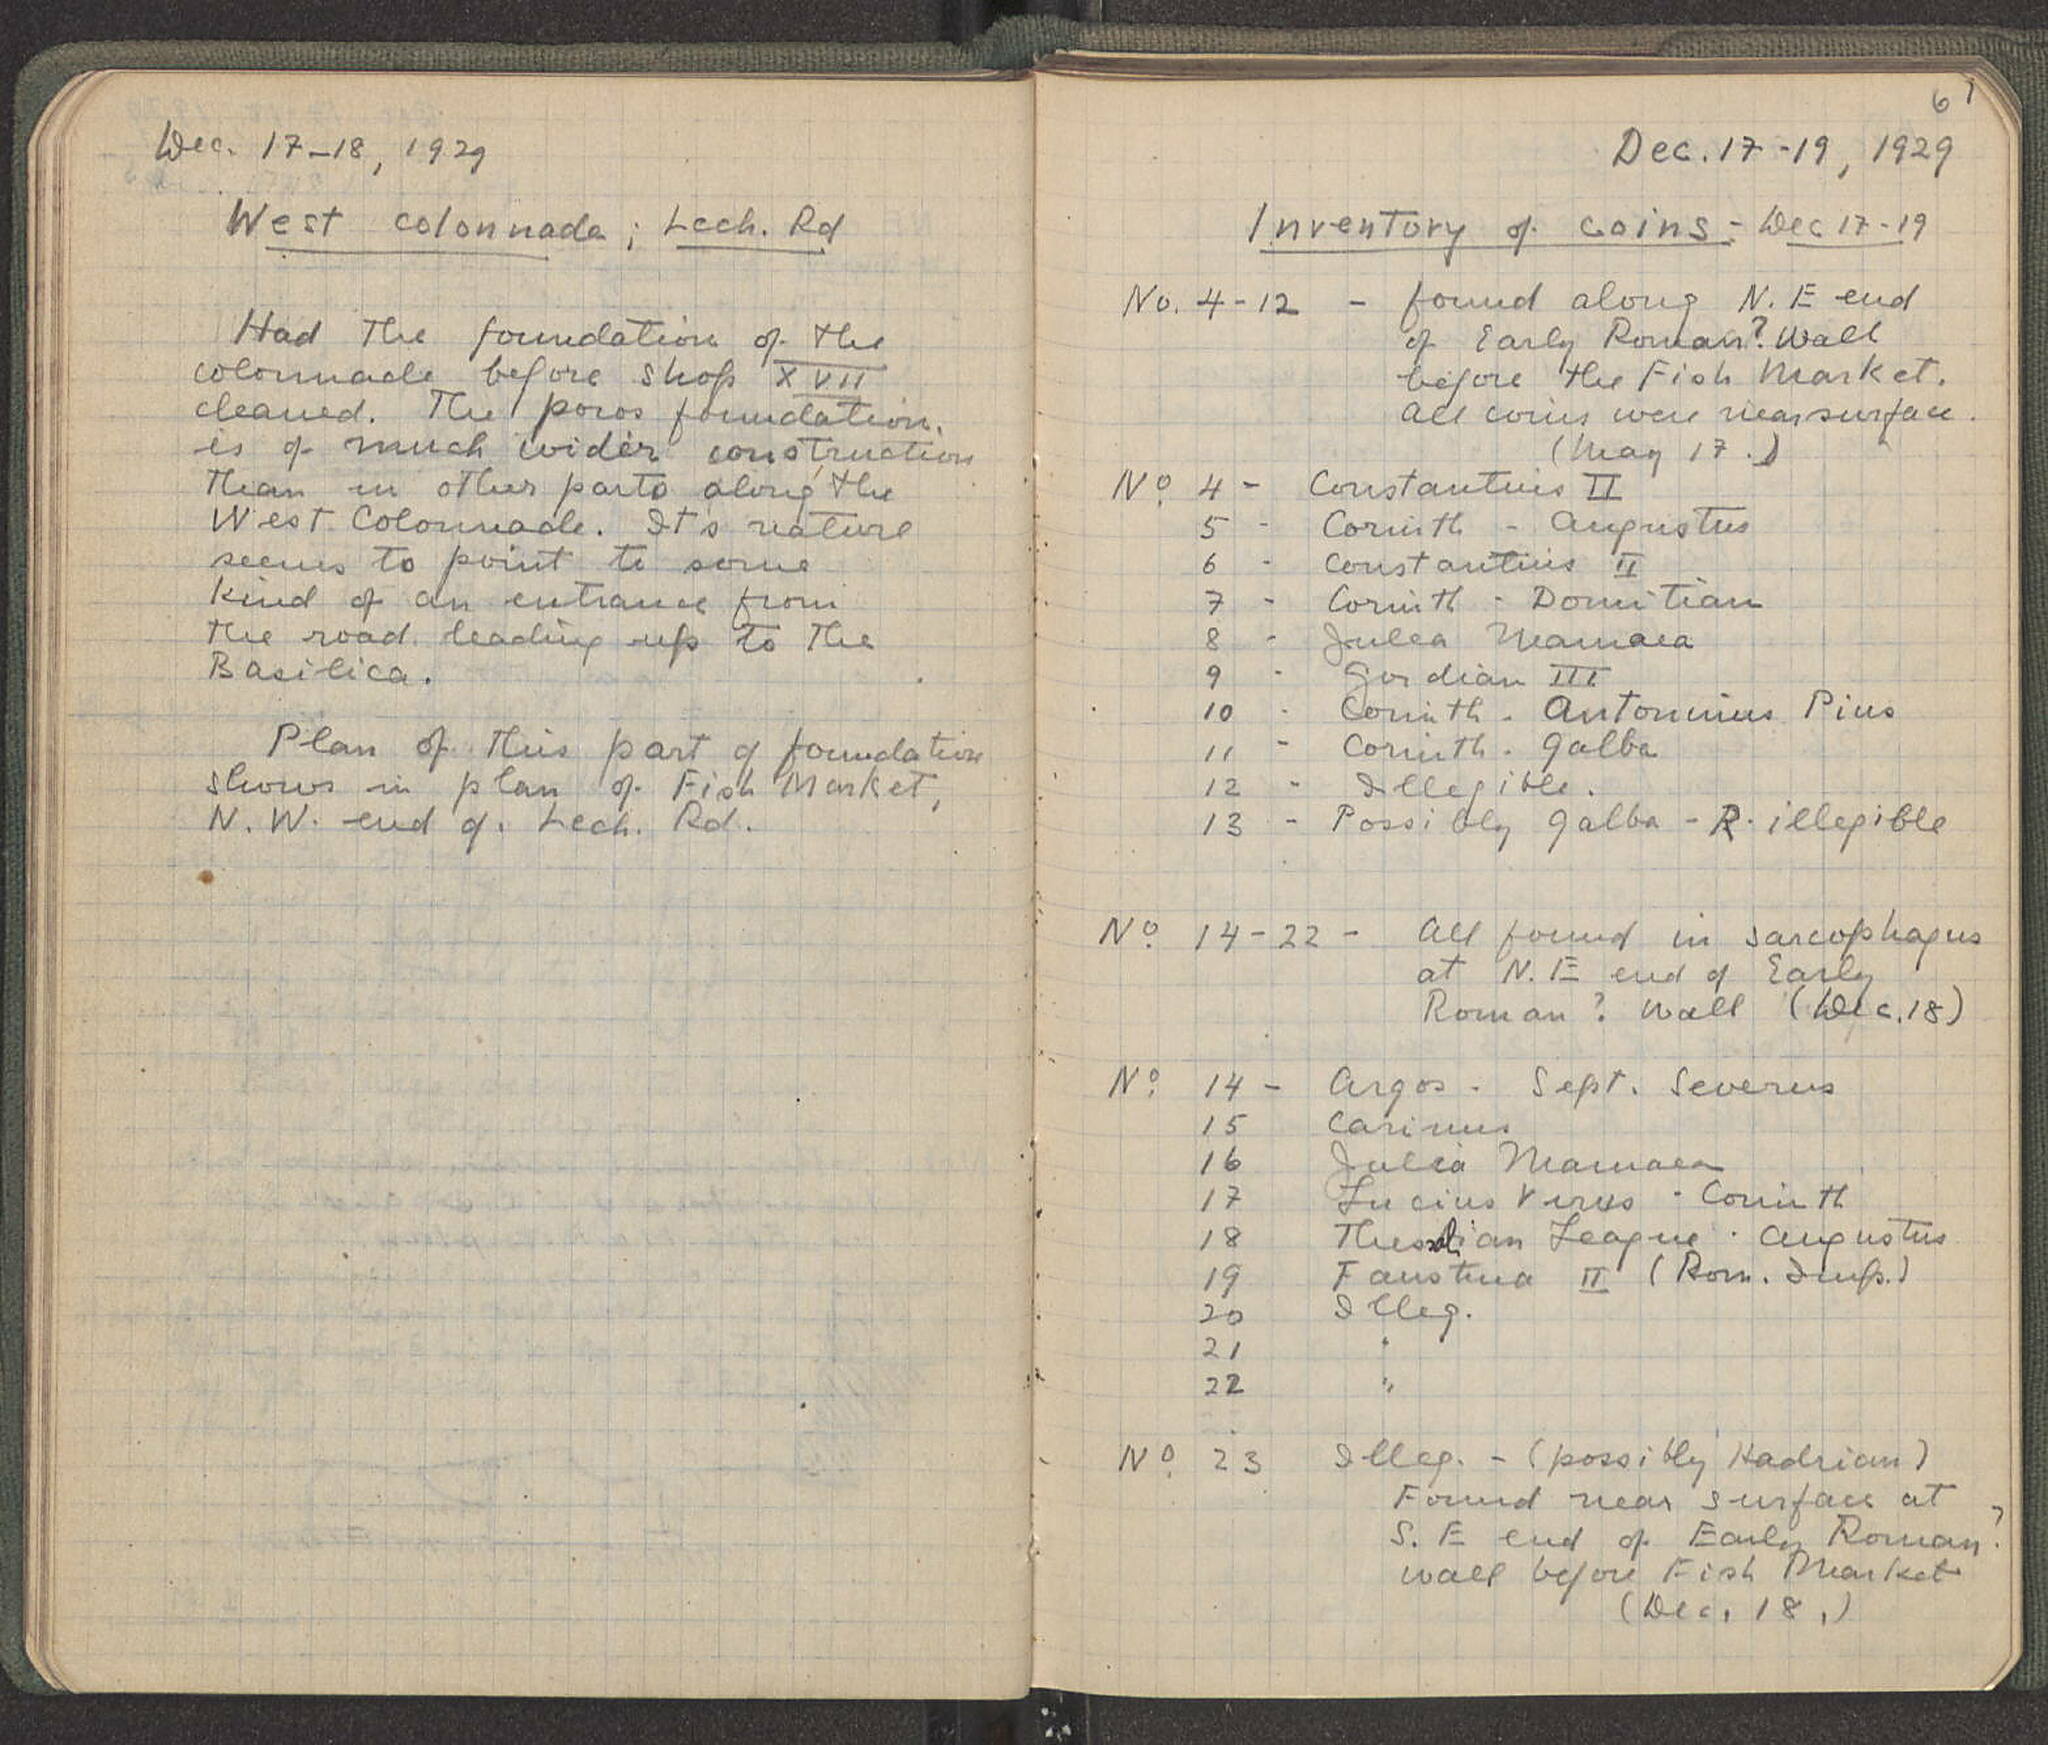 Dec. 17-18, 1929
West Colonnade; Lech. Rd
Had the foundation of the
colonnade before shop XVII
cleaned. The poros foundation,
is of much wider construction
than in other parts along the
West Colonnade. It's nature
seems to point to some
kind of an entrance from
the road leading up to the
Basilica.
Plan of this part of foundation
shows in plan of Fish Market,
N.W. end of. Lech. Rd.
67
Dec. 17-19, 1929
Inventory of coins - Dec 17-19
No. 4-12 - found along N.E end
of Early Roman? Wall
before the Fish Market.
All coins were near surface.
(May 17.)
No. 4 - Constantius II
5 - Corinth - Augustus
6 - Constantius II
7 - Corinth - Domitian
8 - Julia Mamaea
9 - Gordian III
10 - Corinth - Antoninus Pius
11 - Corinth - Galba
12 - Illegible.
13 - Possibly Galba - R. illegible
No. 14-22 - All found in sarcophagus
at N.E end of Early
Roman? Wall (Dec. 18)
No. 14 - Argos - Sept. Severus
15 Carinus
16 Julia Mamaea
17 Lucius Verus - Corinth
18 Thessalian League - Augustus
19 Faustina II (Rom. Imp.)
20 Illeg.
21 "
22 "
No. 23 Illeg. - (possibly Hadrian)
Found near surface at
S.E end of Early Roman?
wall before Fish Market
(Dec. 18.)